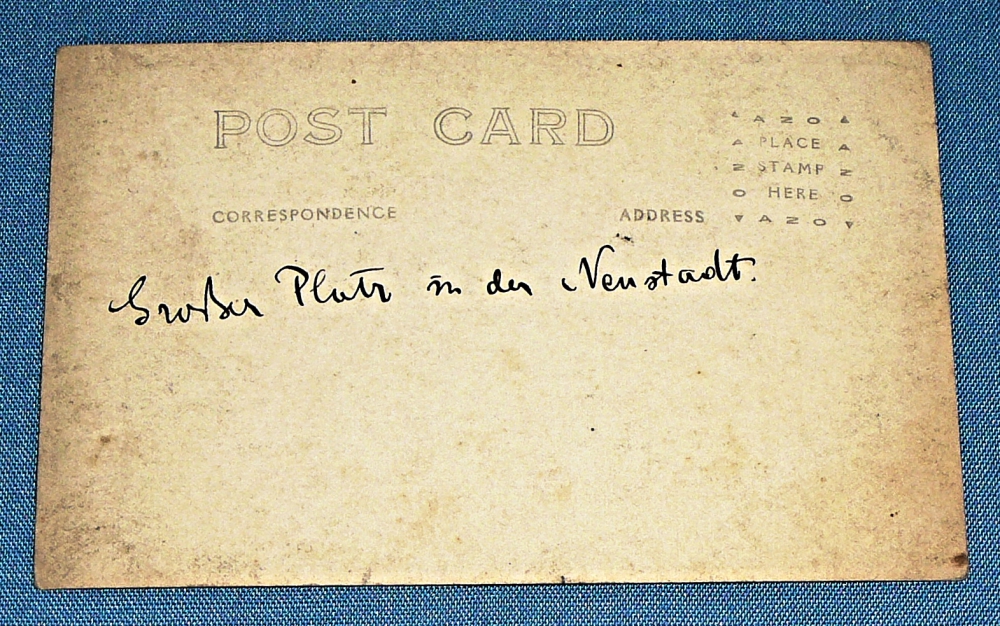 POST CARD
▲ A Z O ▲
A PLACE A
Z STAMP Z
O HERE O
▼ A Z O ▼
CORRESPONDENCE
ADDRESS
Großer Platz in der Neustadt.